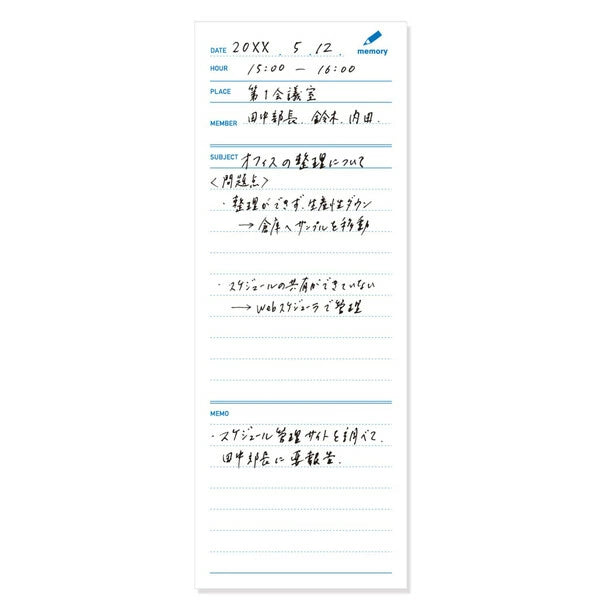 memory
DATE 20XX . 5 . 12 .
HOUR 15:00 — 16:00
PLACE 第1会議室
MEMBER 田中部長. 鈴木. 内田.
SUBJECT オフィスの整理について
<問題点>
・整理ができず、生産性ダウン
→ 倉庫へサンプルを移動
・スケジュールの共有ができていない
→ Webスケジューラで管理
MEMO
・スケジュール管理サイトを調べて、
田中部長に要報告.